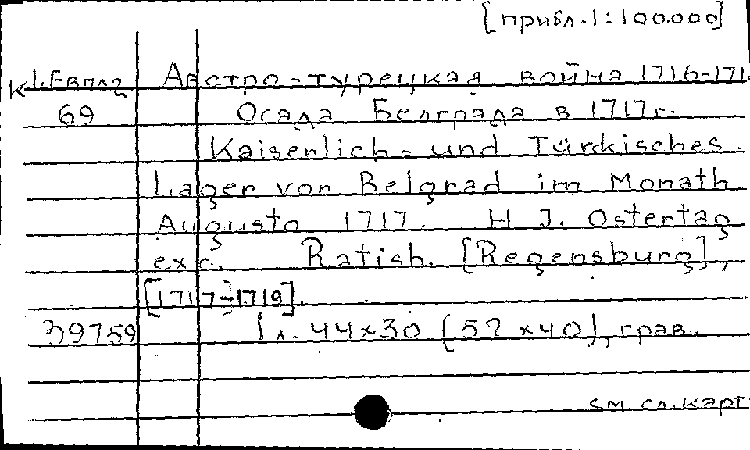 [прибл. 1:100.000]
К 1.Евпл2 Австро-турецкая война 1716-171
69 Осада Белграда в 1717 г.
Kaiserlich- und Türckisches
Lager von Belgrad im Monath
Augusto 1717. H. J. Ostertag
exc. Ratisb. [Regensburg],
[1717-1719].
39759 1 л. 44x30 (52x40), грав.
см. сл. карт